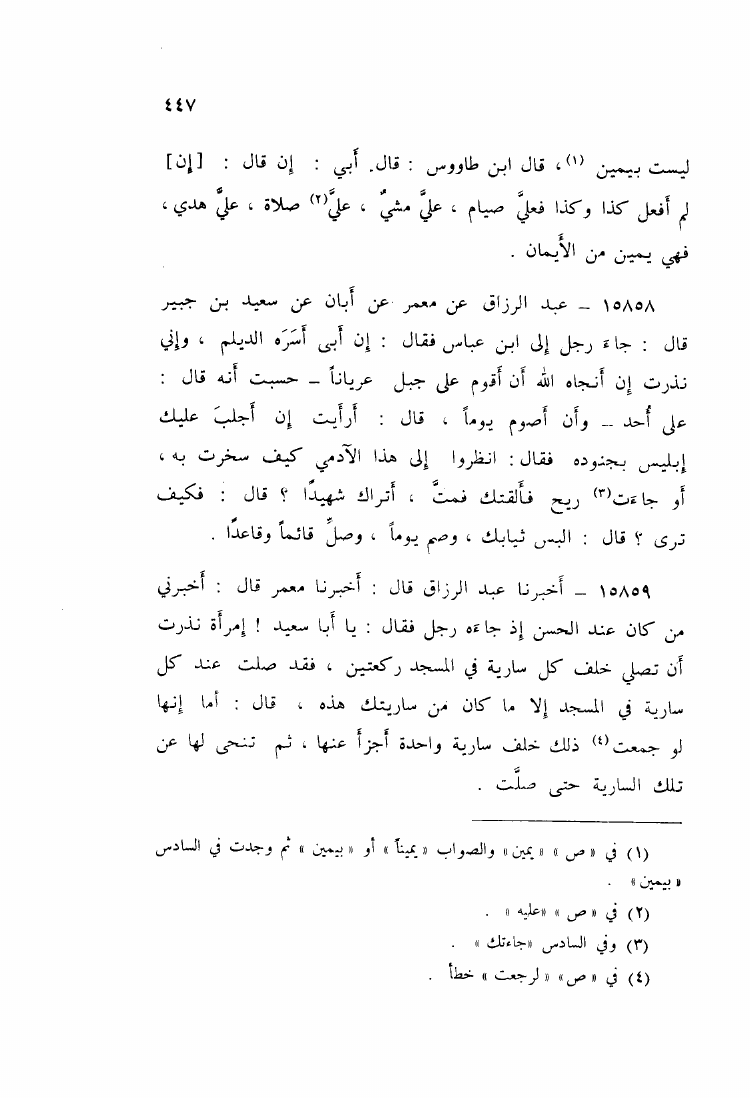 ٤٤٧
ليست بيمين (١) ، قال ابن طاووس : قال. أَبي : إِن قال : [إِن]
لم أَفعل كذا وكذا فعليَّ صيام ، عليَّ مشيٌ ، عليَّ(٢) صلاة ، عليَّ هدي ،
فهي يمين من الأَيمان .
١٥٨٥٨ – عبد الرزاق عن معمر عن أَبان عن سعيد بن جبير
قال : جاءَ رجل إِلى ابن عباس فقال : إِن أَبى أَسَرَه الديلم ، وإِني
نذرت إِن أَنجاه الله أَن أَقوم على جبل عرياناً – حسبت أَنه قال :
على أُحد – وأَن أَصوم يوماً ، قال : أَرأَيت إِن أَجلبَ عليك
إِبليس بجنوده فقال: انظروا إِلى هذا الآدمي كيف سخرت به ،
أَو جاءَت(٣) ريح فأَلقتك فمتَّ ، أَتراك شهيدًا ؟ قال : فكيف
ترى ؟ قال : البس ثيابك ، وصم يوماً ، وصلِّ قائماً وقاعدًا .
١٥٨٥٩ – أَخبرنا عبد الرزاق قال : أَخبرنا معمر قال : أَخبرني
من كان عند الحسن إِذ جاءَه رجل فقال : يا أَبا سعيد ! إِمرأَة نذرت
أَن تصلي خلف كل سارية في المسجد ركعتين ، فقد صلت عند كل
سارية في المسجد إِلا ما كان من ساريتك هذه ، قال : أَما إِنها
لو جمعت(٤) ذلك خلف سارية واحدة أَجزأَ عنها ، ثم تنحى لها عن
تلك السارية حتى صلَّت .
(١) في « ص » « يمين» والصواب « يميناً » أو « بيمين » ثم وجدت في السادس
« بيمين » .
(٢) في « ص » «عليه » .
(٣) وفي السادس «جاءتك » .
(٤) في « ص» « لرجعت » خطأ .